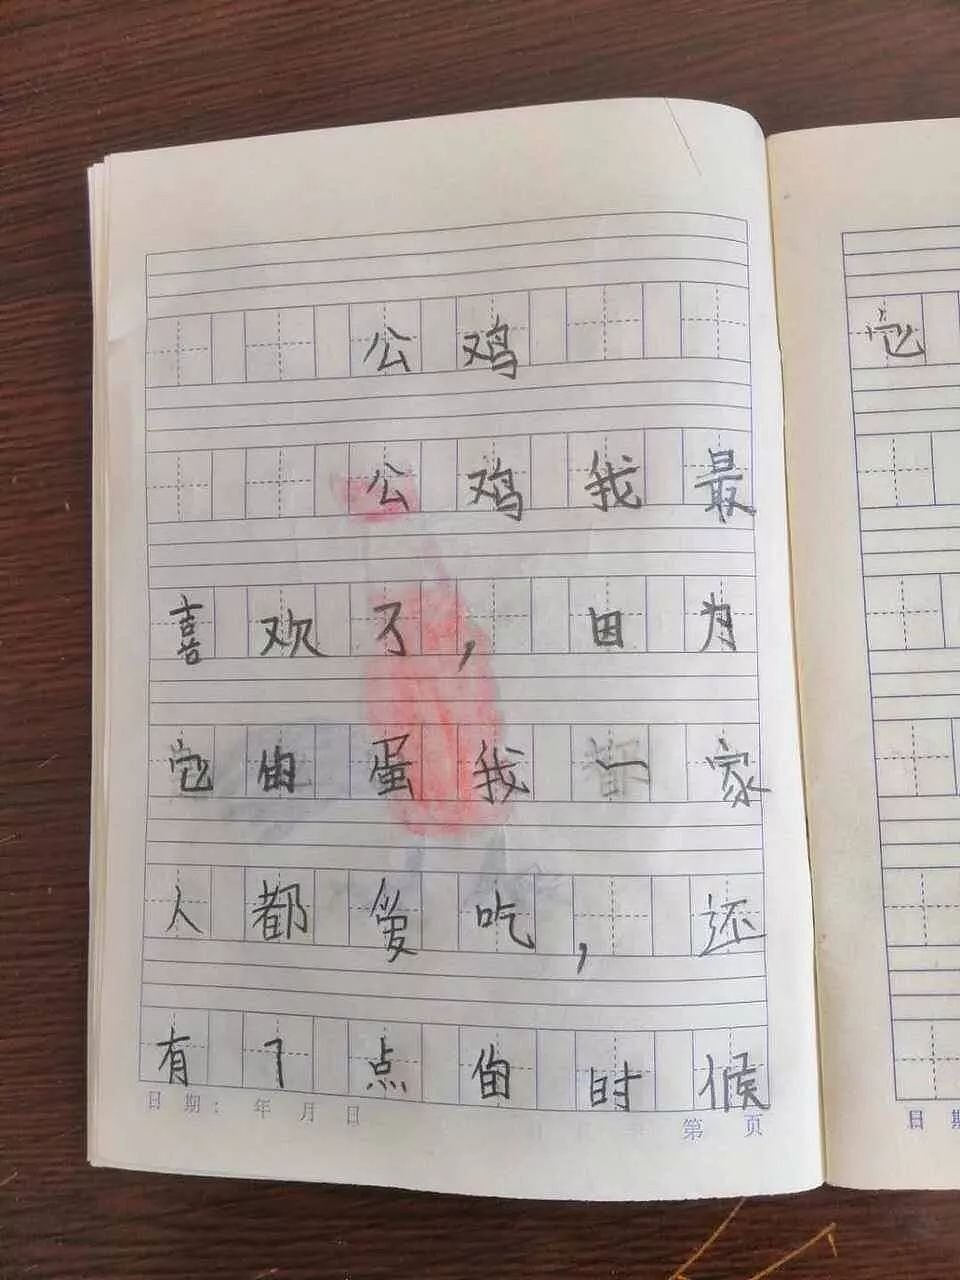 公鸡
它
公鸡我最
喜欢了，因为
它由蛋我一家
人都爱吃，还
有7点由时候
日期： 年 月 日
第 页
日 期